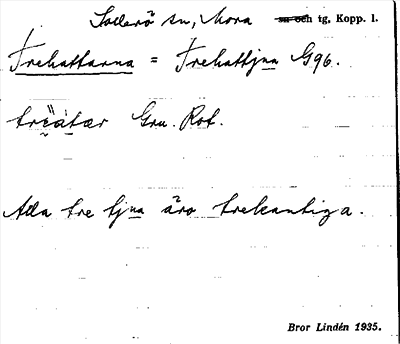 Sollerö sn, Mora sn och tg, Kopp. l.
Trehattarna = Trehattjna G96.
treátær Gru. Rot.
Alla tre tjna äro trekantiga.
Bror Lindén 1935.